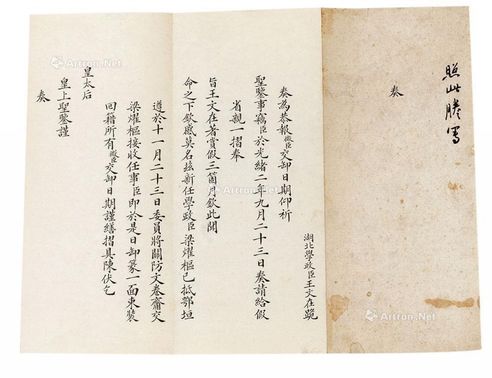 照此謄寫
奏
湖北學政臣王文在跪
奏為恭報微臣交卸日期仰祈
聖鑒事竊臣於光緒二年九月二十三日奏請給假
省親一摺奉
旨王文在著賞假三箇月欽此聞
命之下欽感莫名茲新任學政臣梁燿樞已抵鄂垣
遵於十一月二十三日委員將關防文卷齎交
梁燿樞接收任事臣即於是日卸篆一面束裝
回籍所有微臣交卸日期謹繕摺具陳伏乞
皇太后
皇上聖鑒謹
奏
Artron.Net
Artron.Net